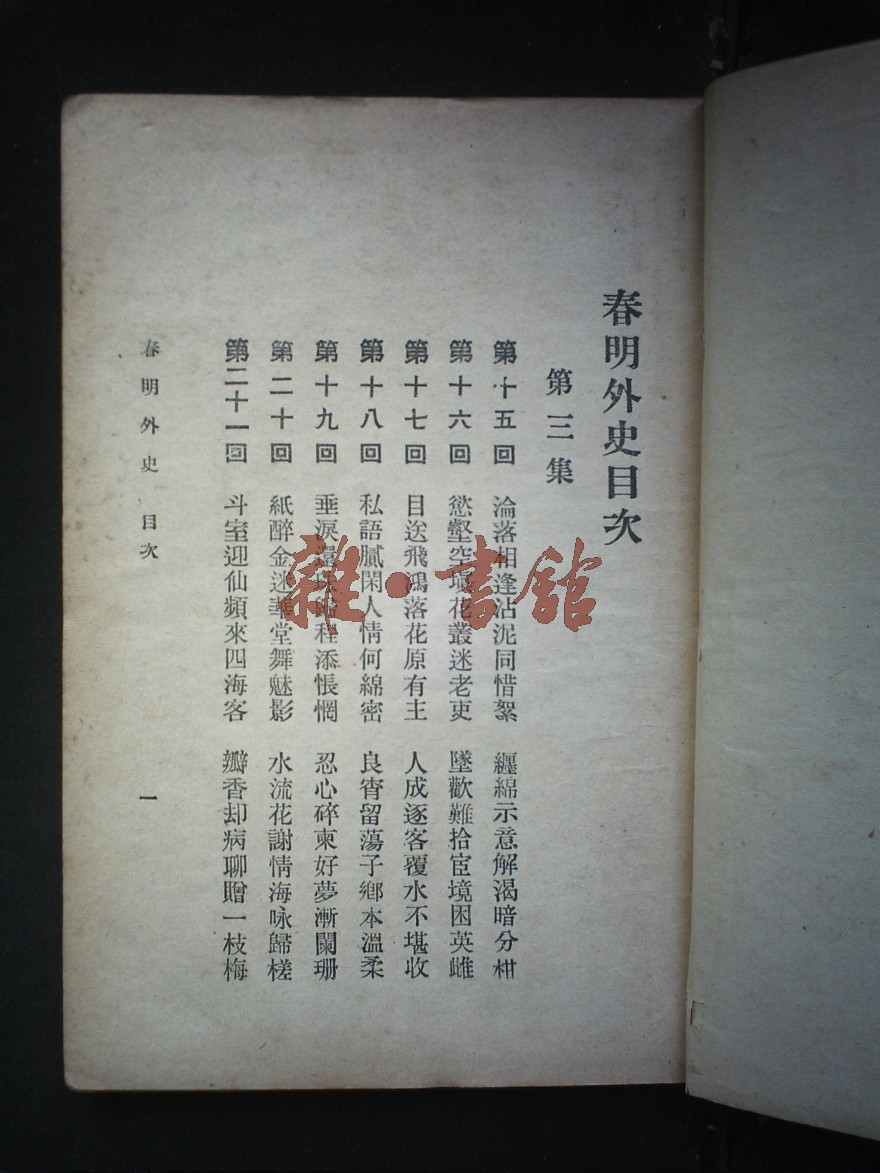 春明外史目次
第三集
第十五回 淪落相逢沾泥同惜絮 纏綿示意解渴暗分柑
第十六回 慾壑空填花叢迷老吏 墜歡難拾宦境困英雌
第十七回 目送飛鴻落花原有主 人成逐客覆水不堪收
第十八回 私語膩閑人情何綿密 良宵留蕩子鄉本溫柔
第十九回 垂淚還珠歸程添悵惘 忍心碎柬好夢漸闌珊
第二十回 紙醉金迷華堂舞魅影 水流花謝情海咏歸槎
第二十一回 斗室迎仙頻來四海客 瓣香却病聊贈一枝梅
春明外史 目次 一
雜·書館